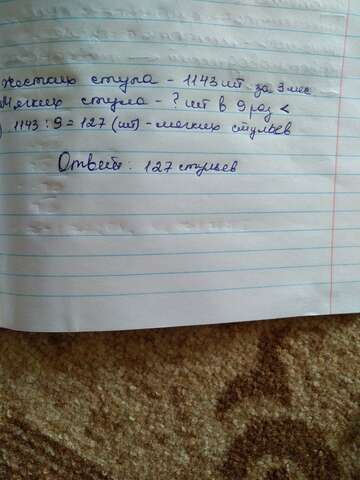 Жестких стула - 1143 шт за 3 мес.
Мягких стула - ? шт в 9 раз <
) 1143 : 9 = 127 (шт) - мягких стульев
Ответ: 127 стульев